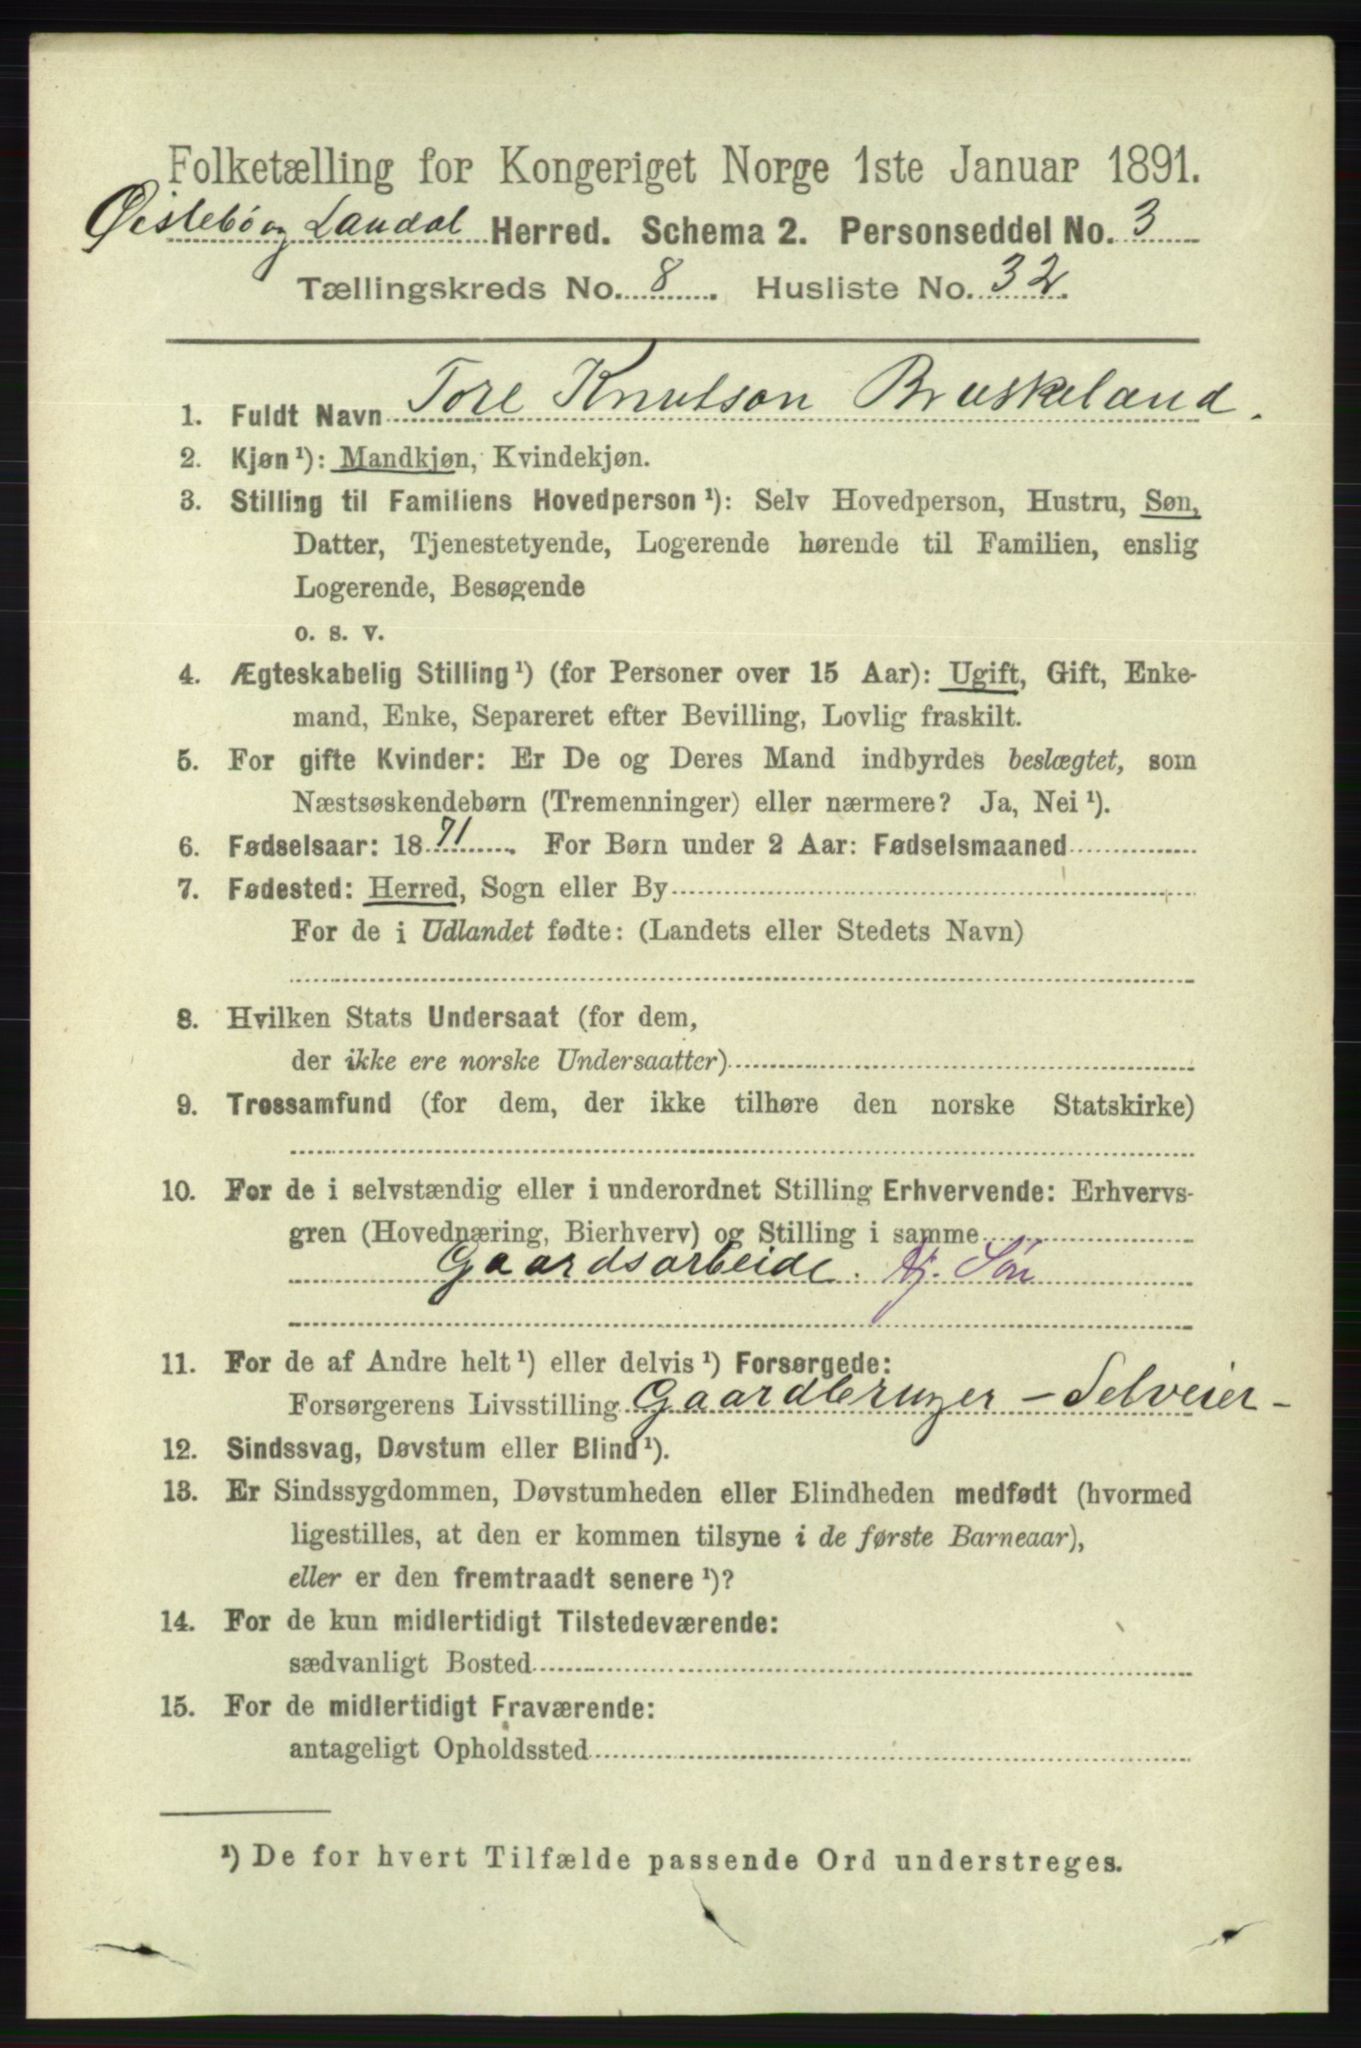 Folketælling for Kongeriget Norge 1ste Januar 1891.
Øislebö og Laudal Herred. Schema 2. Personseddel No. 3
Tællingskreds No. 8. Husliste No. 32.
1. Fuldt Navn Tore Knutson Bruskeland.
2. Kjøn¹): Mandkjøn, Kvindekjøn.
3. Stilling til Familiens Hovedperson¹): Selv Hovedperson, Hustru, Søn,
Datter, Tjenestetyende, Logerende hørende til Familien, enslig
Logerende, Besøgende
o. s. v.
4. Ægteskabelig Stilling¹) (for Personer over 15 Aar): Ugift, Gift, Enke-
mand, Enke, Separeret efter Bevilling, Lovlig fraskilt.
5. For gifte Kvinder: Er De og Deres Mand indbyrdes beslægtet, som
Næstsøskendebørn (Tremenninger) eller nærmere? Ja, Nei¹).
6. Fødselsaar: 1871. For Børn under 2 Aar: Fødselsmaaned
7. Fødested: Herred, Sogn eller By
For de i Udlandet fødte: (Landets eller Stedets Navn)
8. Hvilken Stats Undersaat (for dem,
der ikke ere norske Undersaatter)
9. Trossamfund (for dem, der ikke tilhøre den norske Statskirke)
10. For de i selvstændig eller i underordnet Stilling Erhvervende: Erhvervs-
gren (Hovednæring, Bierhverv) og Stilling i samme
Gaardsarbeide. Søn
11. For de af Andre helt¹) eller delvis¹) Forsørgede:
Forsørgerens Livsstilling Gaardbruger – Selveier –
12. Sindssvag, Døvstum eller Blind¹).
13. Er Sindssygdommen, Døvstumheden eller Blindheden medfødt (hvormed
ligestilles, at den er kommen tilsyne i de første Barneaar),
eller er den fremtraadt senere¹)?
14. For de kun midlertidigt Tilstedeværende:
sædvanligt Bosted
15. For de midlertidigt Fraværende:
antageligt Opholdssted
¹) De for hvert Tilfælde passende Ord understreges.